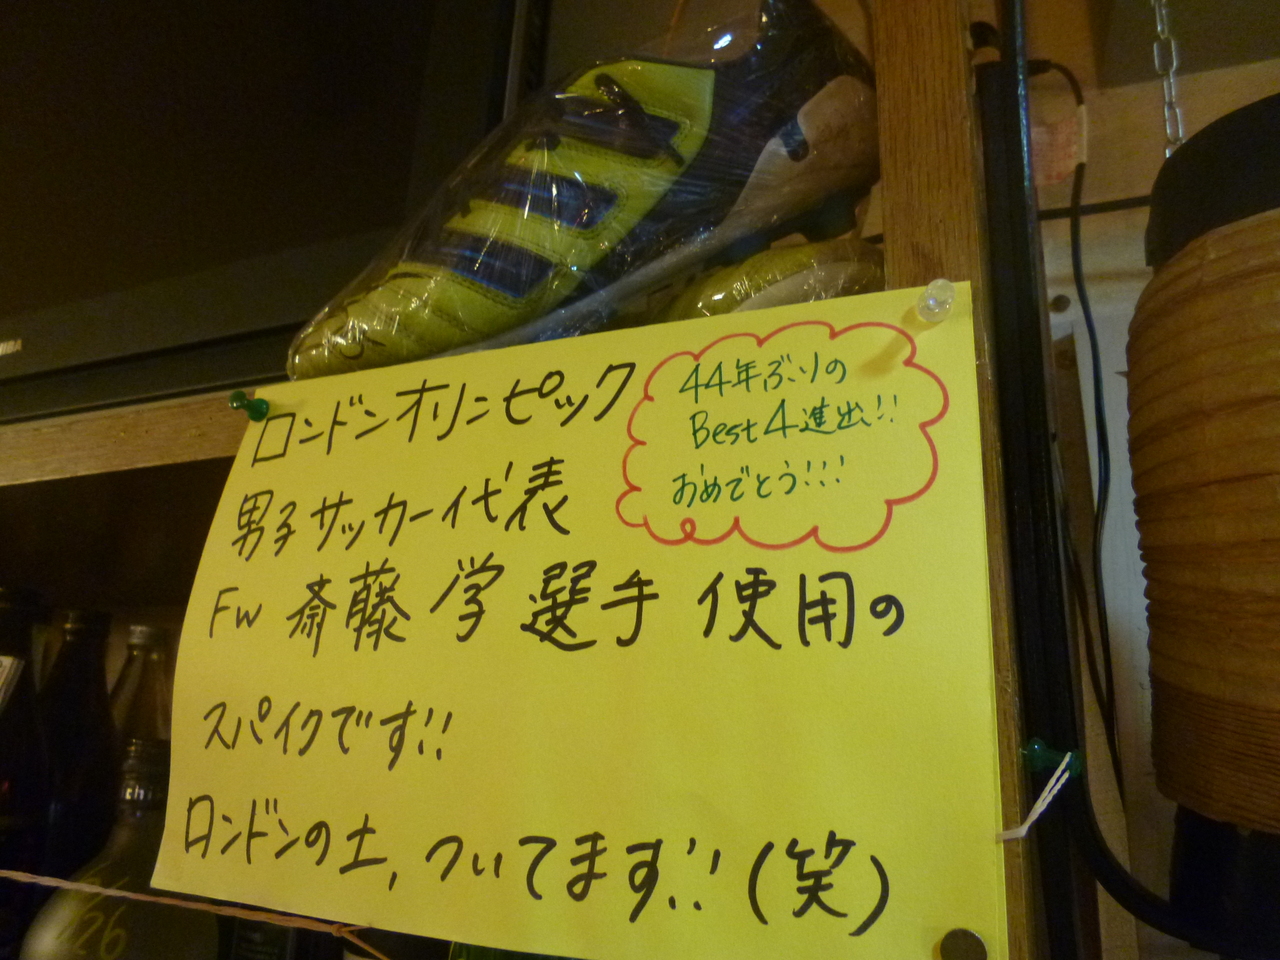 ロンドンオリンピック
44年ぶりの
Best4進出!!
おめでとう!!!
男子サッカー代表
FW 斎藤 学 選手 使用の
スパイクです!!
ロンドンの土,ついてます!!(笑)